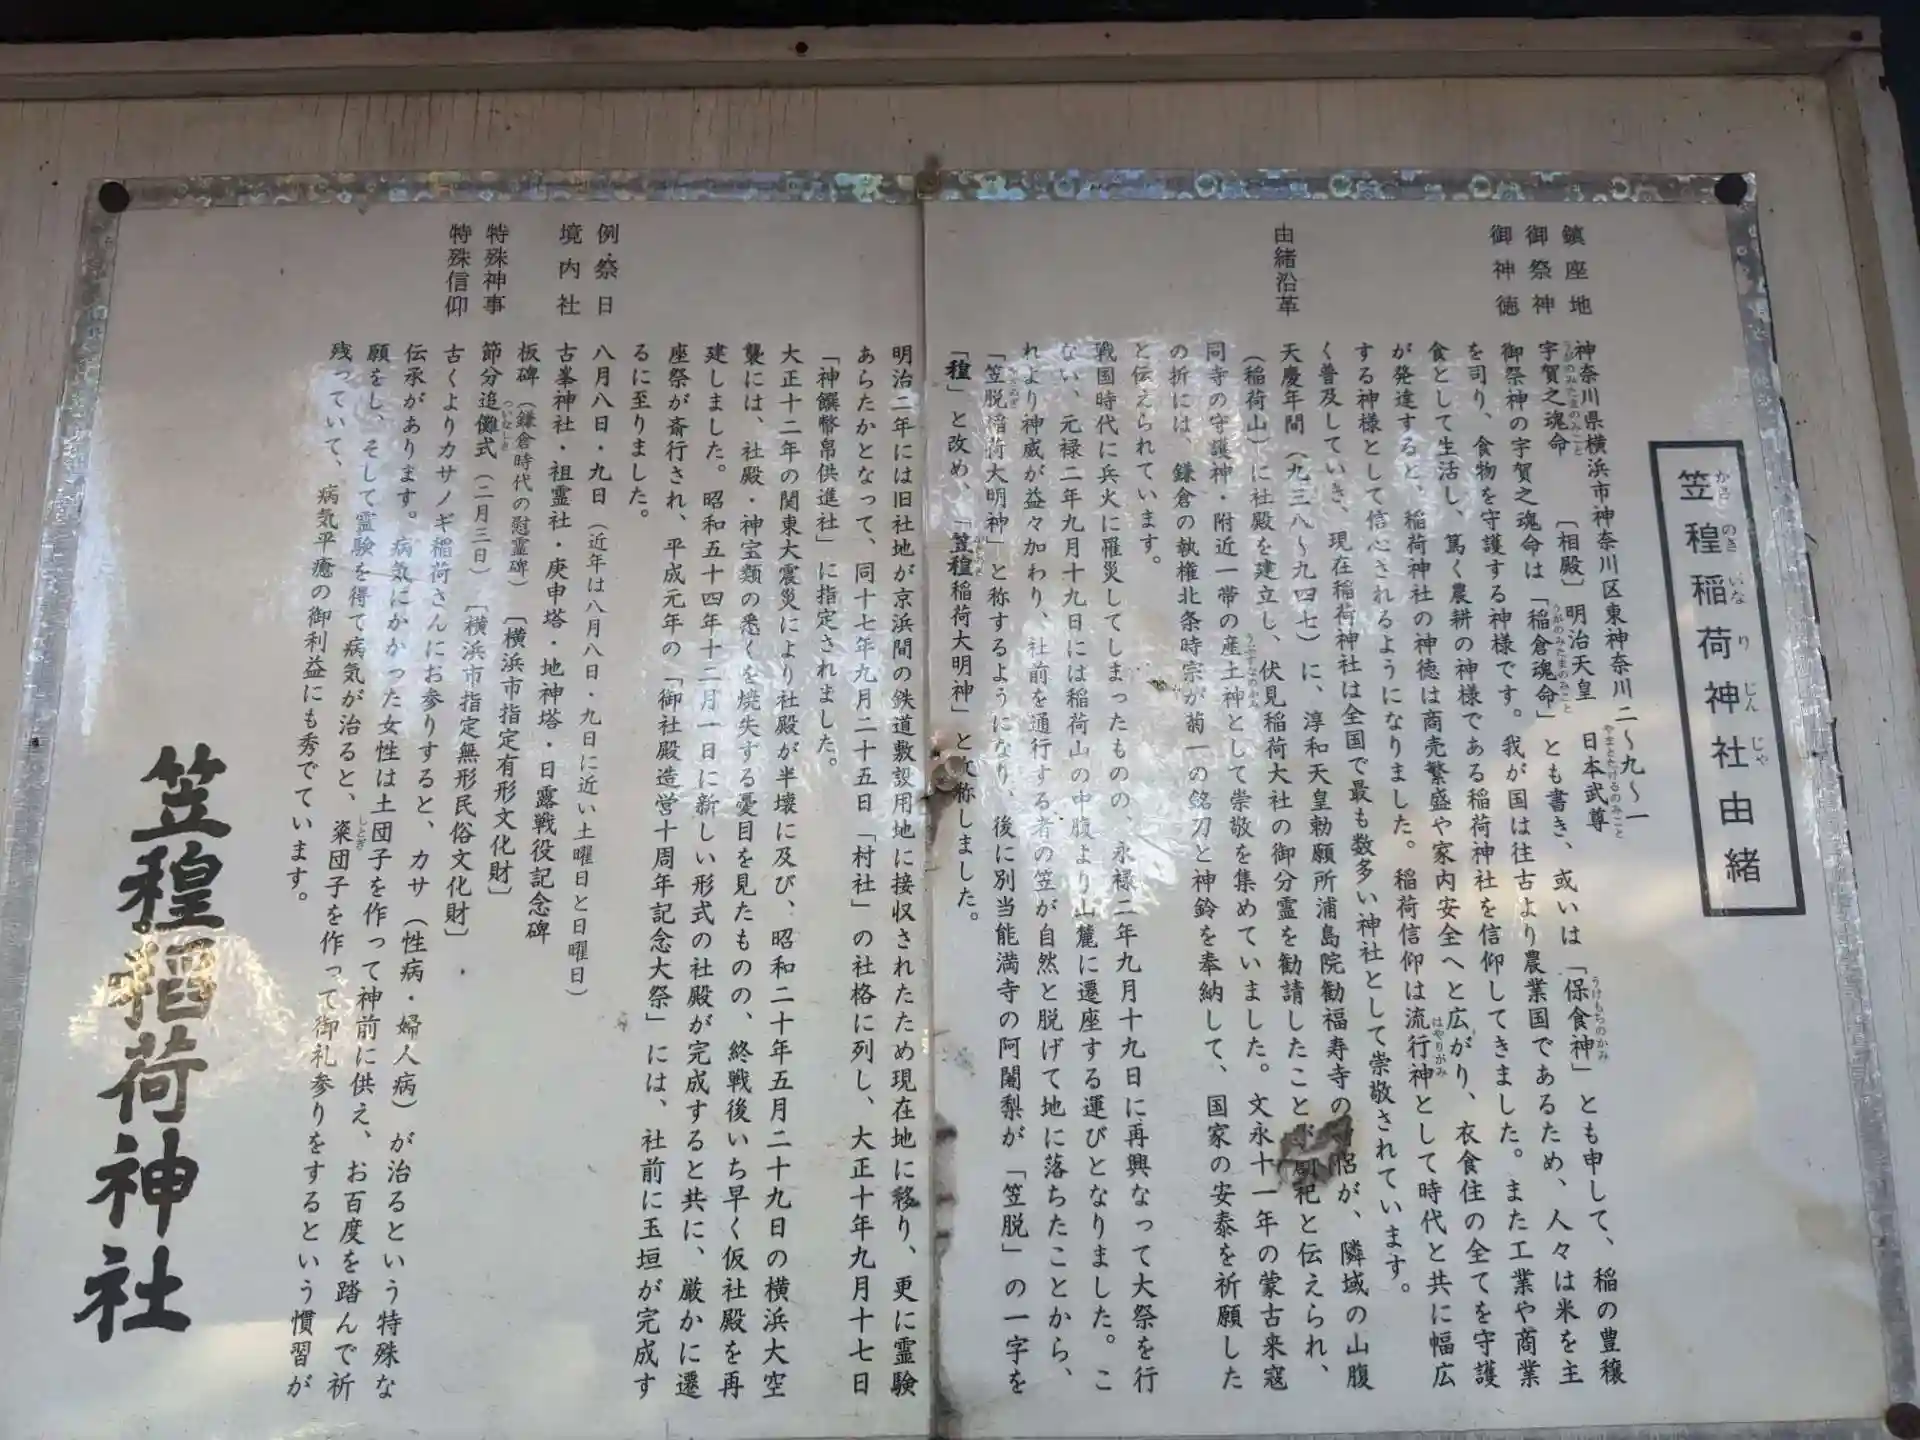 笠䅣稲荷神社由緒
かさ のぎ いな り じん じゃ
鎮座地 神奈川県横浜市神奈川区東神奈川二〜九〜一
御祭神 宇賀之魂命 〔相殿〕明治天皇 日本武尊
うがのみたまのみこと やまとたけるのみこと
御神徳 御祭神の宇賀之魂命は「稲倉魂命」とも書き、或いは「保食神」とも申して、稲の豊穣
うがのみたまのみこと うけもちのかみ
を司り、食物を守護する神様です。我が国は往古より農業国であるため、人々は米を主
食として生活し、篤く農耕の神様である稲荷神社を信仰してきました。また工業や商業
が発達すると、稲荷神社の神徳は商売繁盛や家内安全へと広がり、衣食住の全てを守護
する神様として信心されるようになりました。稲荷信仰は流行神として時代と共に幅広
はやりがみ
く普及していき、現在稲荷神社は全国で最も数多い神社として崇敬されています。
由緒沿革 天慶年間(九三八〜九四七)に、淳和天皇勅願所浦島院勧福寿寺の僧侶が、隣域の山腹
(稲荷山)に社殿を建立し、伏見稲荷大社の御分霊を勧請したことが創祀と伝えられ、
同寺の守護神・附近一帯の産土神として崇敬を集めていました。文永十一年の蒙古来寇
うぶすなのかみ
の折には、鎌倉の執権北条時宗が菊一の銘刀と神鈴を奉納して、国家の安泰を祈願した
と伝えられています。
戦国時代に兵火に罹災してしまったものの、永禄二年九月十九日に再興なって大祭を行
ない、元禄二年九月十九日には稲荷山の中腹より山麓に遷座する運びとなりました。こ
れより神威が益々加わり、社前を通行する者の笠が自然と脱げて地に落ちたことから、
「笠脱稲荷大明神」と称するようになり、後に別当能満寺の阿闍梨が「笠脱」の一字を
かさぬぎ
「䅣」と改め、「笠䅣稲荷大明神」と改称しました。
かさのぎ
明治二年には旧社地が京浜間の鉄道敷設用地に接収されたため現在地に移り、更に霊験
あらたかとなって、同十七年九月二十五日「村社」の社格に列し、大正十年九月十七日
「神饌幣帛供進社」に指定されました。
大正十二年の関東大震災により社殿が半壊に及び、昭和二十年五月二十九日の横浜大空
襲には、社殿・神宝類の悉くを焼失する憂目を見たものの、終戦後いち早く仮社殿を再
建しました。昭和五十四年十二月一日に新しい形式の社殿が完成すると共に、厳かに遷
座祭が斎行され、平成元年の「御社殿造営十周年記念大祭」には、社前に玉垣が完成す
るに至りました。
例祭日 八月八日・九日(近年は八月八日・九日に近い土曜日と日曜日)
境内社 古峯神社・祖霊社・庚申塔・地神塔・日露戦役記念碑
板碑(鎌倉時代の慰霊碑)〔横浜市指定有形文化財〕
特殊神事 節分追儺式(二月三日)〔横浜市指定無形民俗文化財〕
ついなしき
特殊信仰 古くよりカサノギ稲荷さんにお参りすると、カサ(性病・婦人病)が治るという特殊な
伝承があります。病気にかかった女性は土団子を作って神前に供え、お百度を踏んで祈
願をし、そして霊験を得て病気が治ると、粢団子を作って御礼参りをするという慣習が
しとぎ
残っていて、病気平癒の御利益にも秀でています。
笠䅣稲荷神社